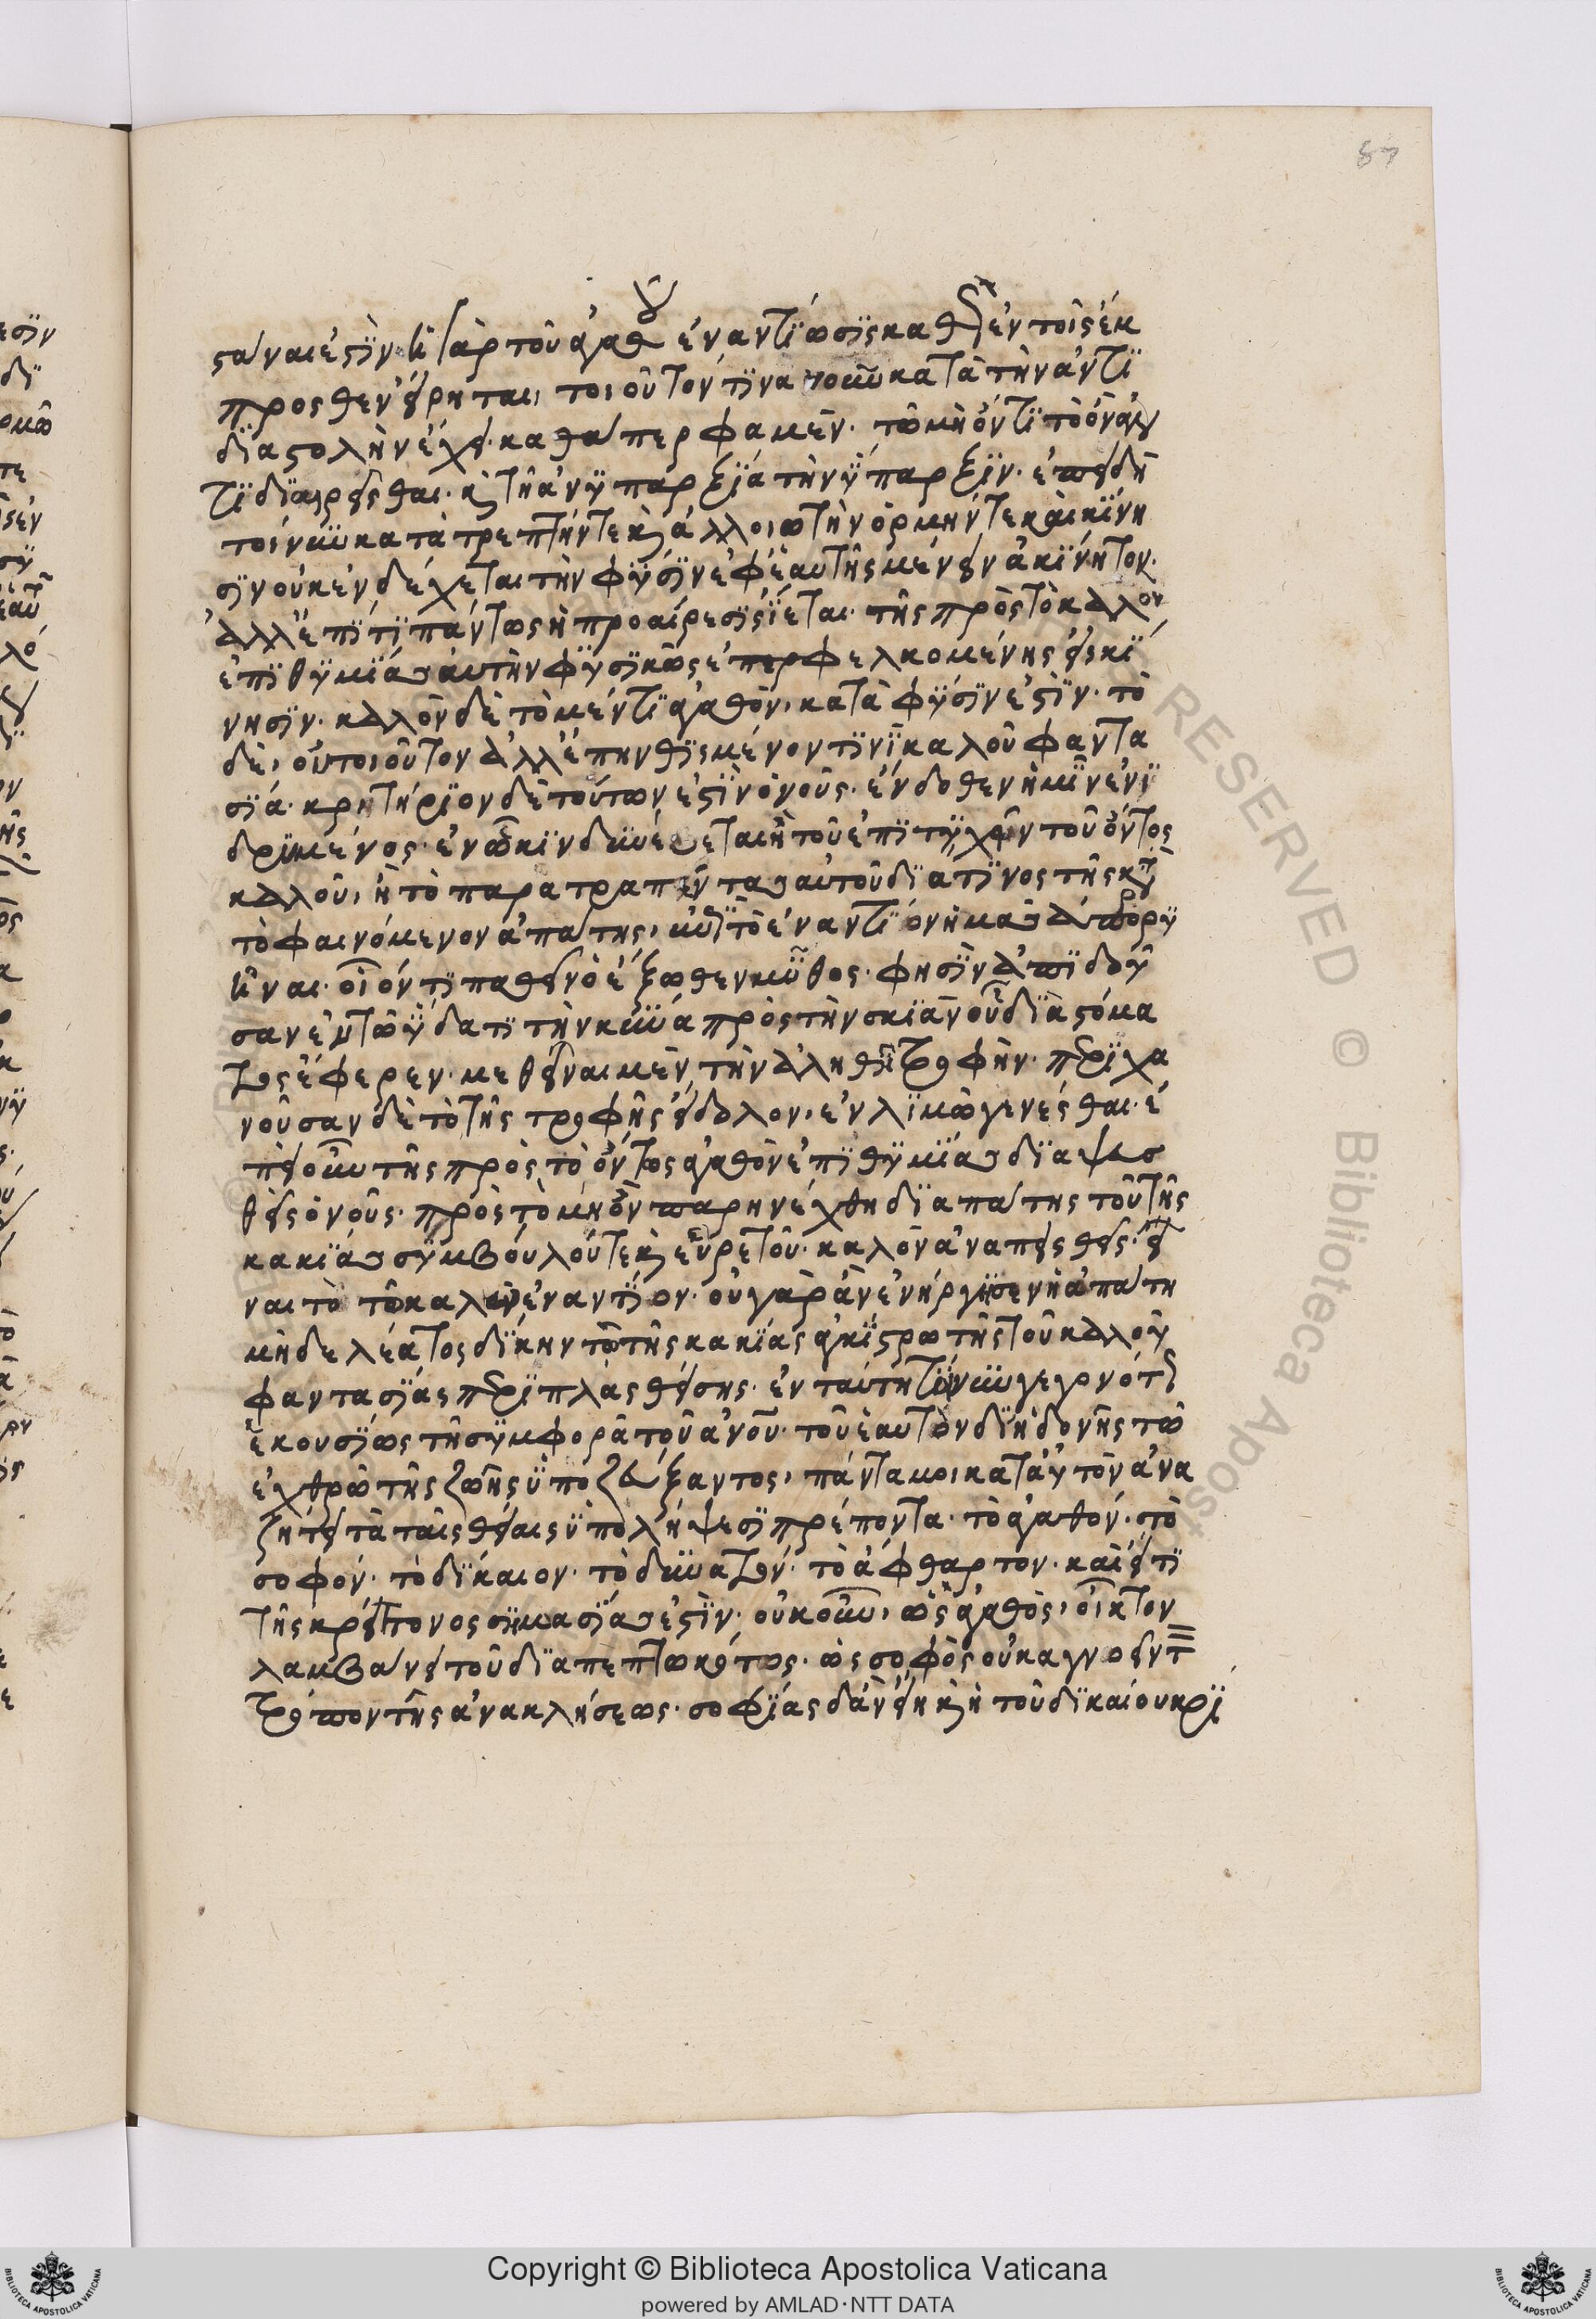 στάναι ἐστὶν ἡ γὰρ τοῦ ἀγαθοῦ ἐναντίωσις καθὼς ἐν τοῖς ἔμ
προσθεν εἴρηται, τοιοῦτον τινα νοῦν κατὰ τὴν ἀντι
διαστολὴν ἔχει· καθάπερ φαμέν· τῶ μὴ ὄντι τὸ ὂν ἀν
τιδιαιρεῖσθαι· κ τῆ ἀνυπαρξία τὴν ὕπαρξιν· ἐπειδὴ
τοίνυν κατὰ τρεπτήν τε κ ἀλλοιωτὴν ὁρμήν τε καὶ κίνη
σιν οὐκ ἐνδέχεται τὴν φύσιν ἐφ' ἑαυτῆς μένειν ἀκίνητον·
ἀλλ' ἐπί τι πάντως ἡ προαίρεσις ἵεται· τῆς πρὸς τὸ καλὸν
ἐπιθυμίας αὐτὴν φυσικῶς ἐπερφελκομένης εἰς κί
νησιν· καλὸν δὲ τὸ μέν τι ἀγαθὸν, κατὰ φύσιν ἐστὶν· τὸ
δὲ, οὐ τοιοῦτον ἀλλ' ἐπηνθισμένον τινὶ καλοῦ φαντα
σία· κρητήριον δὲ τούτων ἐστὶν ὁ νοῦς· ἔνδοθεν ἡμῖν ἐνι
δριμένος· ἐν ὧ κινδυνεύεται ἢ τοῦ ἐπιτυχεῖν τοῦ ὄντος
καλοῦ, ἢ τὸ παρατραπέντας αὐτοῦ διά τινος τῆς κατὰ
τὸ φαινόμενον ἀπάτης, ἐπὶ τὸ ἐναντίον ἡμᾶς ἀπορρυ
ῆναι· οἷόν τι παθεῖν ὁ ἔξωθεν μῦθος· φησὶν ἀπιδοῦ
σαν ἐν τῶ ὕδατι τὴν κύνα πρὸς τὴν σκιὰν οὗ διὰ στόμα
τος ἔφερεν· μεθεῖναι μὲν τὴν ἀληθῆ τροφὴν· περιχα
νοῦσαν δὲ τὸ τῆς τροφῆς εἴδολον, ἐν λιμῶ γενέσθαι· ἐ
πεὶ οὖν τῆς πρὸς τὸ ὄντος ἀγαθὸν ἐπιθυμίας διαψευσ
θεὶς ὁ νοῦς· πρὸς τὸ μὴ ὂν παρηνέχθη δι' ἀπάτης τοῦ τῆς
κακίας συμβούλου τε κ εὑρετοῦ· καλὸν ἀναπεισθεὶς· εἶ
ναι τὸ τῶ καλῶ ἐναντίον· οὐ γὰρ ἂν ἐνήργησεν ἡ ἀπάτη
μὴ δελέατος δίκην τῶ τῆς κακίας ἀγκίστρω τῆς τοῦ καλοῦ
φαντασίας περιπλασθείσης· ἐν ταύτη τοίνυν γεγονότος
ἑκουσίως τῆ συμφορᾶ τοῦ ἀνου· τοῦ ἑαυτὸν δι' ἡδονῆς τῶ
ἐχθρῶ τῆς ζωῆς ὑποζεύξαντος, πάντα μοι κατὰ ταυτὸν ἀνα
ζήτει τὰ ταῖς θείαις ὑπολήψεσι πρέποντα· τὸ ἀγαθόν· τὸ
σοφόν· τὸ δίκαιον· τὸ δυνατόν· τὸ ἄφθαρτον· καὶ εἴ τι
τῆς κρείττονος σημασίας ἐστὶν· οὐκοῦν, ὡς ἀγαθὸς, οἶκτον
λαμβάνει τοῦ διαπεπτωκότος· ὡς σοφὸς οὐκ ἀγνοεῖ τὸν
τρόπον τῆς ἀνακλήσεως· σοφίας δ' ἂν εἴη κ ἡ τοῦ δικαίου κρί